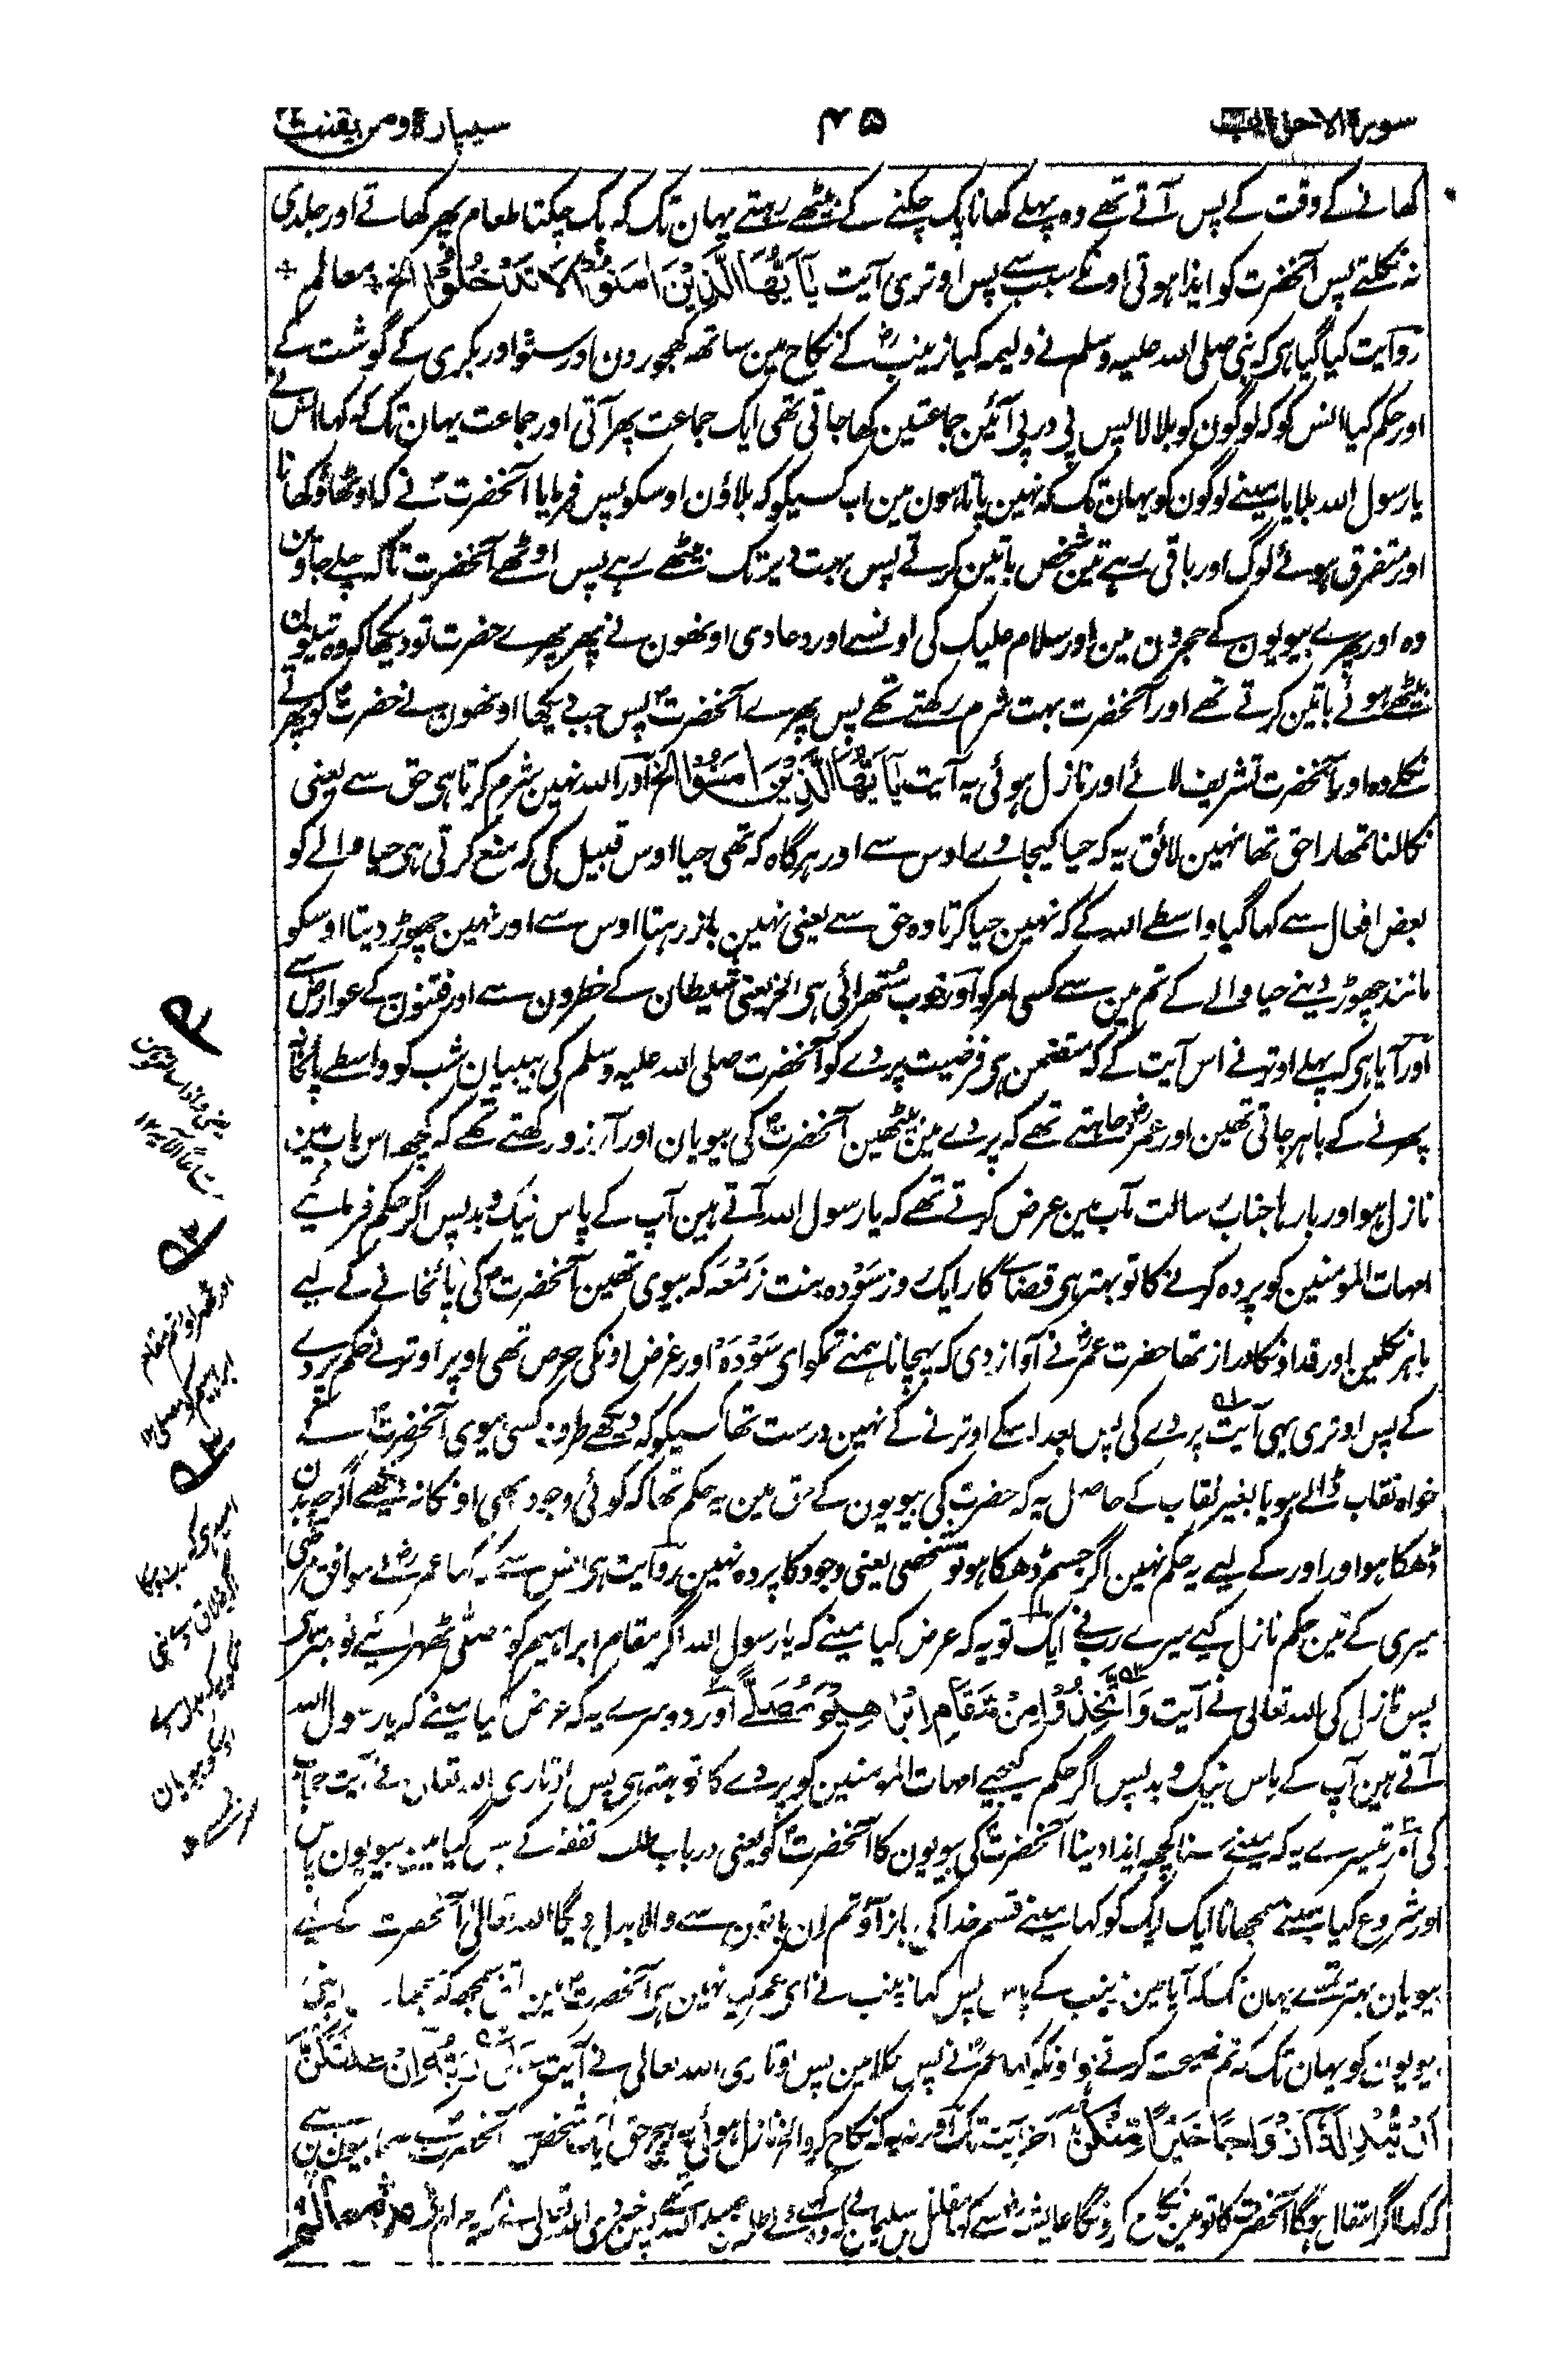 سورة الاحزاب
۴۵
سیپارہ ومن یقنت
کھانے کے وقت کے پس آتے تھے وہ پہلے کھانا پک چکنے کے بیٹھے رہتے یہان تک کہ پک چکتا طعام پھر کھاتے اور جلدی
نہ نکلتے پس آنحضرت کو ایذا ہوتی اونکے سبب سے پس اوتری آیت یٰۤاَیُّهَا الَّذِیْنَ اٰمَنُوْا لَا تَدْخُلُوْا الخ معالم
روایت کیا گیا ہی کہ نبی صلی اللہ علیہ وسلم نے ولیمہ کیا زینب کے نکاح مین ساتھ کھجورون اور ستو اور بکری کے گوشت کے
اور حکم کیا انس کو کہ لوگون کو بلا لا پس پی در پی آئین جماعتین کھا جاتی تھی ایک جماعت پھر آتی اور جماعت یہان تک کہ کہا انس نے
یا رسول اللہ بلایا مینے لوگون کو یہان تک کہ نہین پاتا ہون مین اب کسیکو کہ بلاؤن اوسکو پس فرمایا آنحضرت نے کہ اوٹھاؤ کھانا
اور متفرق ہوئے لوگ اور باقی رہے تین شخص باتین کرتے پس بہت دیر تک بیٹھے رہے پس اوٹھے آنحضرت تاکہ چلے جاوین
وہ اور پھرے بیویون کے حجرون مین اور سلام علیک کی اونسے اور دعا دی اونھون نے پھر پھرے حضرت تو دیکھا کہ وہ تینون
بیٹھے ہوئے باتین کرتے تھے اور آنحضرت بہت شرم رکھتے تھے پس پھرے آنحضرت پس جب دیکھا اونھون نے حضرت کو پھرتے
نکلے وہ اور آنحضرت تشریف لائے اور نازل ہوئی یہ آیت یٰۤاَیُّهَا الَّذِیْنَ اٰمَنُوْا الخ اور اللہ نہین شرم کرتا ہی حق سے یعنی
نکالنا تمھارا حق تھا نہین لائق یہ کہ حیا کیجاوے اوس سے اور ہر گاہ کہ تھی حیا اوس قبیل کی کہ منع کرتی ہی حیا والے کو
بعض افعال سے کہا گیا واسطے اللہ کے کہ نہین حیا کرتا وہ حق سے یعنی نہین باز رہتا اوس سے اور نہین چھوڑ دیتا اوسکو
مانند چھوڑ دینے حیا والے کے تم مین سے کسی امر کو اور خوب ستھرائی ہی الخ یعنی شیطان کے خطرون سے اور فتنون کے عوارض سے
اور آیا ہی کہ پہلے اوترنے اس آیت کے کہ متضمن ہی فرضیت پردے کو آنحضرت صلی اللہ علیہ وسلم کی بیبیان شب کو واسطے پائخانے
پھرنے کے باہر جاتی تھین اور عمر چاہتے تھے کہ پردے مین بیٹھین آنحضرت کی بیویان اور آرزو رکھتے تھے کہ کچھ اس باب مین
نازل ہو اور بارہا جناب رسالت مآب مین عرض کرتے تھے کہ یا رسول اللہ آتے ہین آپ کے پاس نیک و بد پس اگر حکم فرمائیے
امہات المومنین کو پردہ کرنے کا تو بہتر ہی قضا کار ایک روز سَوْدہ بنت زَمْعَہ کہ بیوی تھین آنحضرت کی پائخانے کے لیے
باہر نکلین اور قد اونکا دراز تھا حضرت عمر نے آواز دی کہ پہچانا ہمنے تمکو ای سَوْدَہ اور غرض اونکی حرص تھی اوپر اوترنے حکم پردے
کے پس اوتری یہی آیت پردے کی پس بعد اسکے اوترنے کے نہین درست تھا کسیکو کہ دیکھے طرف کسی بیوی آنحضرت کے
خواہ نقاب ڈالے ہو یا بغیر نقاب کے حاصل یہ کہ حضرت کی بیویون کے حق مین یہ حکم تھا کہ کوئی وجود بھی اونکا نہ دیکھے اگرچہ بدن
ڈھکا ہو اور اور کے لیے یہ حکم نہین اگر جسم ڈھکا ہو تو شخصی یعنی وجود کا پردہ نہین روایت ہی انس سے کہ کہا عمر نے موافق مرضی
میری کے تین حکم نازل کیے میرے رب نے ایک تو یہ کہ عرض کیا مینے کہ یا رسول اللہ اگر مقام ابراہیم کو مصلی ٹھہرائیے تو بہتر ہی
پس نازل کی اللہ تعالی نے آیت وَاتَّخِذُوْا مِنْ مَّقَامِ اِبْرٰهِیْمَ مُصَلًّی اور دوسرے یہ کہ عرض کیا مینے کہ یا رسول اللہ
آتے ہین آپ کے پاس نیک و بد پس اگر حکم کیجیے امہات المومنین کو پردے کا تو بہتر ہی پس اوتاری اللہ تعالی نے آیت حجاب
کی اور تیسرے یہ کہ مینے سنا کچھ ایذا دینا آنحضرت کی بیویون کا آنحضرت کو یعنی در باب طلب نفقہ کے پس گیا مین بیویون پاس
اور شروع کیا مینے سمجھانا ایک ایک کو کہا مینے قسم خدا کی باز آؤ تم ان باتون سے والا بدل دیگا اللہ تعالی آنحضرت کے لیے
بیویان بہتر تمسے یہان تک کہ آیا مین زینب کے پاس پس کہا زینب نے ای عمر کیا نہین ہی آنحضرت مین اتنی سمجھ کہ سمجھا اپنی
بیویون کو یہان تک کہ تم نصیحت کرتے ہو اونکو کہا عمر نے پس نکلا مین پس اوتاری اللہ تعالی نے آیت عَسٰی رَبُّهٗۤ اِنْ طَلَّقَكُنَّ
اَنْ یُّبْدِلَهٗۤ اَزْوَاجًا خَیْرًا مِّنْكُنَّ آخر آیت تک اور نہ یہ کہ نکاح کرو الخ نازل ہوئی یہ بیچ حق ایک شخص آنحضرت کے صحابیون مین سے
کہ کہا اگر انتقال ہوگا آنحضرت کا تو مین نکاح کرونگا عایشہ سے کہا مقاتل بن سلیمان نے کہ وہ طلحہ بن عبید اللہ تھے پس خبر دی اللہ تعالی نے کہ یہ حرام ہی